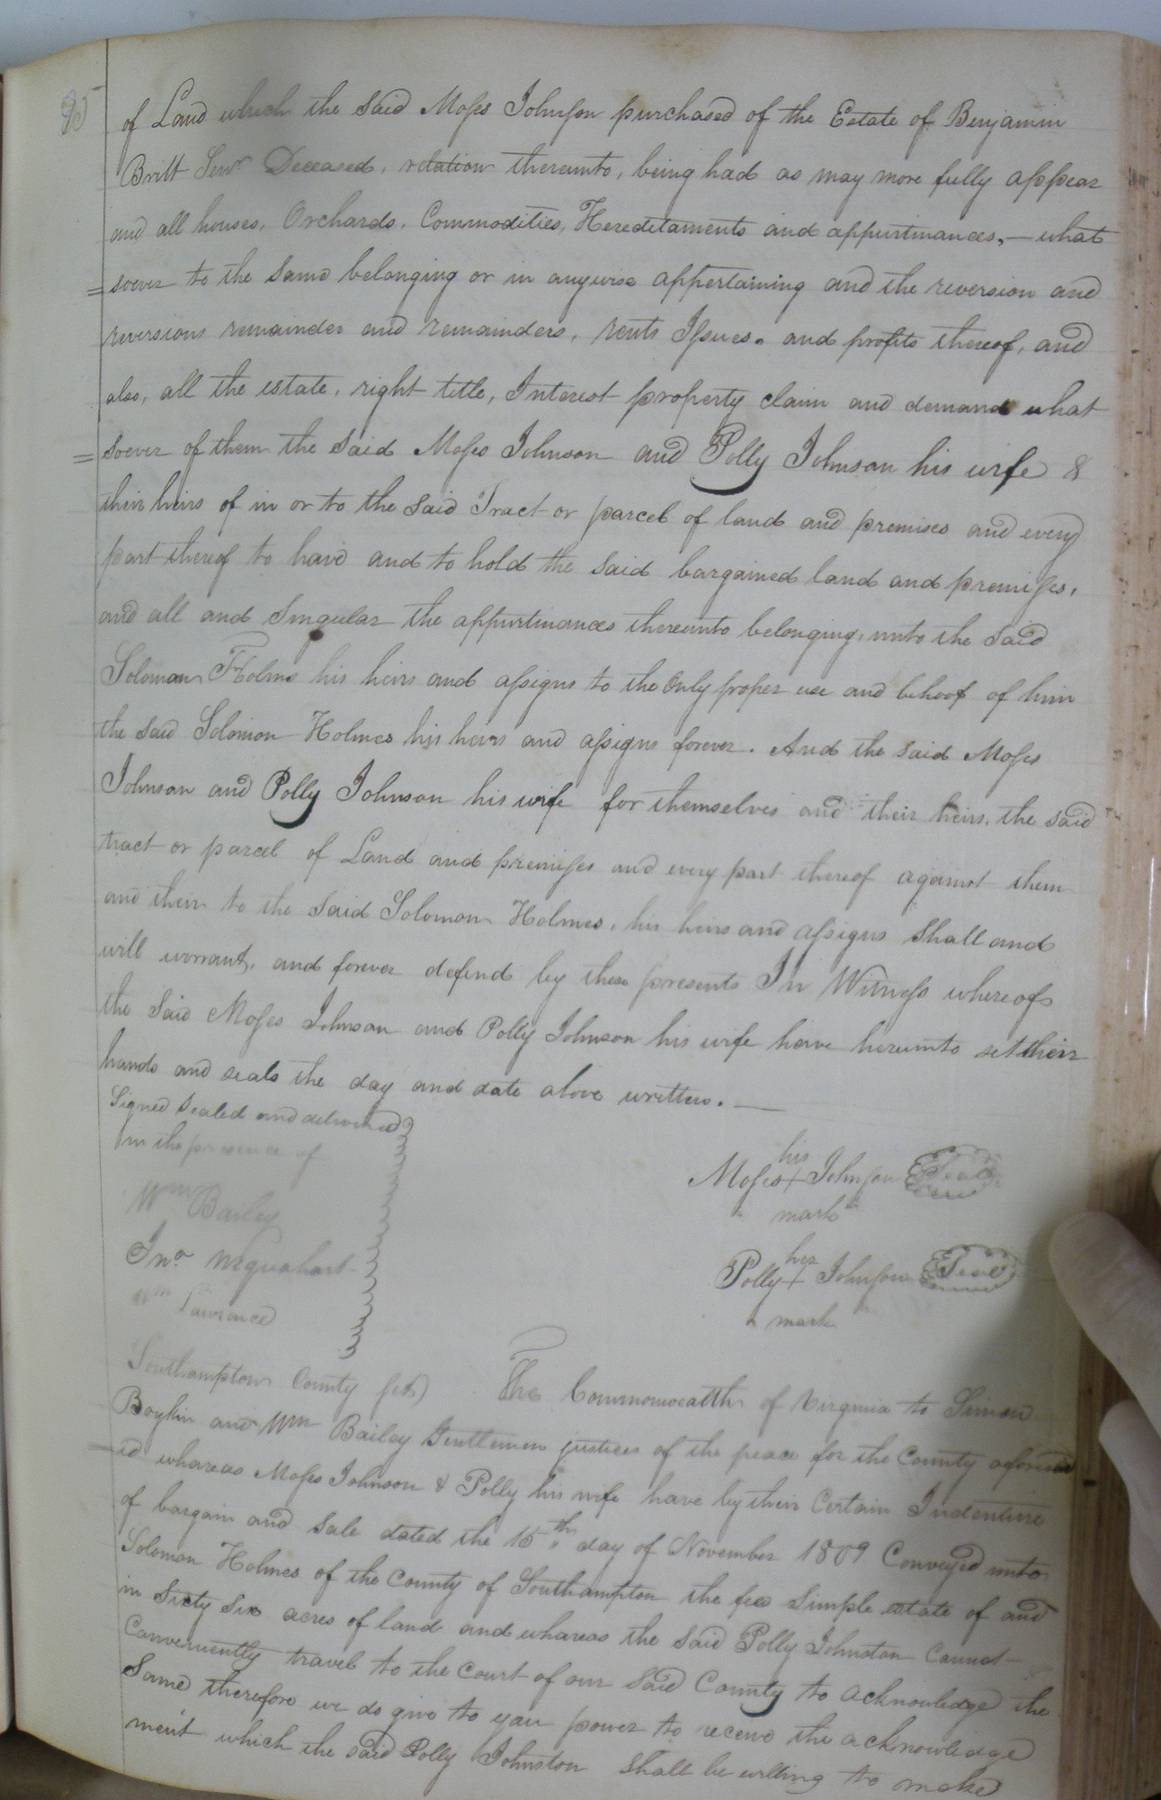 95
of Land which the said Moses Johnson purchased of the Estate of Benjamin
Britt Senr Deceased, relation thereunto, being had as may more fully appear
and all houses, Orchards, Commodities, Hereditaments and appurtinances, — what
= soever to the same belonging or in anywise appertaining and the reversion and
reversions remainder and remainders, rents Issues. and profits thereof, and
also, all the estate, right title, Interest property claim and demand what
= soever of them the said Moses Johnson and Polly Johnson his wife &
their heirs of in or to the said Tract or parcel of land and premises and every
part thereof to have and to hold the said bargained land and premises,
and all and singular the appurtinances thereunto belonging, unto the said
Soloman Holms his heirs and assigns to the Only proper use and behoof of him
the said Solomon Holmes his heirs and assigns forever. And the said Moses
Johnson and Polly Johnson his wife for themselves and their heirs, the said
tract or parcel of Land and premises and every part thereof against them
and their to the said Solomon Holmes, his heirs and assigns shall and
will worrant, and forever defend by these presents In Witness whereof
the said Moses Johnson and Polly Johnson his wife have hereunto set their
hands and seals the day and date above written. —
Signed sealed and delivered
In the presence of
his
Moses + Johnson Seal
mark
Wm Bailey
Jno Urquahart
her
Polly + Johnson Seal
mark
Wm Lawrence
Southampton County (sct) The Commonwealth of Virginia to Simon
Boykin and Wm Bailey Gentlemen justices of the peace for the County aforesa
= id whareas Moses Johnson & Polly his wife have by their Certain Indenture
of bargain and sale dated the 15th day of November 1809 Conveyed unto
Soloman Holmes of the County of Southampton the fee simple estate of and
in sixty six acres of land and whareas the said Polly Johnston Cannot
Conveniently travel to the Court of our said County to acknowledge the
same therefore we do give to you power to receive the acknowledge
ment which the said Polly Johnston shall be willing to make